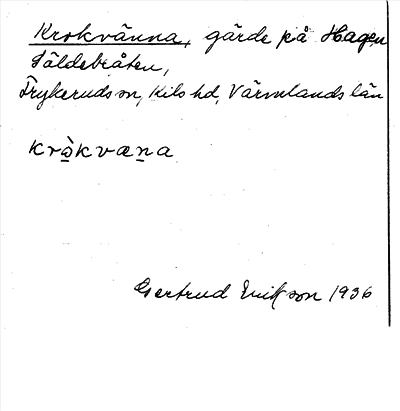 Krokvänna, gärde på Hagen
Fäldebråten,
Frykeruds sn, Kils hd, Värmlands län
krɷ̀kvæna
Gertrud Eriksson 1936